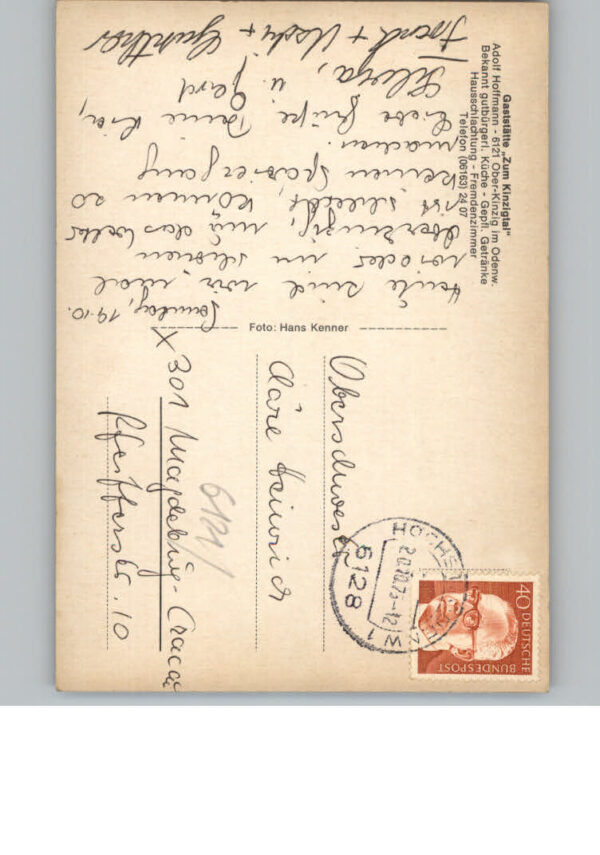 Gaststätte „Zum Kinzigtal"
Adolf Hoffmann - 6121 Ober-Kinzig im Odenw.
Bekannt gutbürgerl. Küche - Gepfl. Getränke
Hausschlachtung - Fremdenzimmer
Telefon (06163) 24 07
Sonntag, 19.10.
Heute sind wir mal
wieder im schönen
Oberkinzig, nur das Wetter
ist schlecht, können so
keinen Spaziergang
machen.
Liebe Grüße
u. Gerd
Helga,
+ Uschi + Günther
Foto: Hans Kenner
Oberschwester
Cläre Heinrich
X 301 Magdeburg-Cracau
Pfeifferstr. 10
6121
HÖCHST
6128
20.10.75-12
40 DEUTSCHE
BUNDESPOST